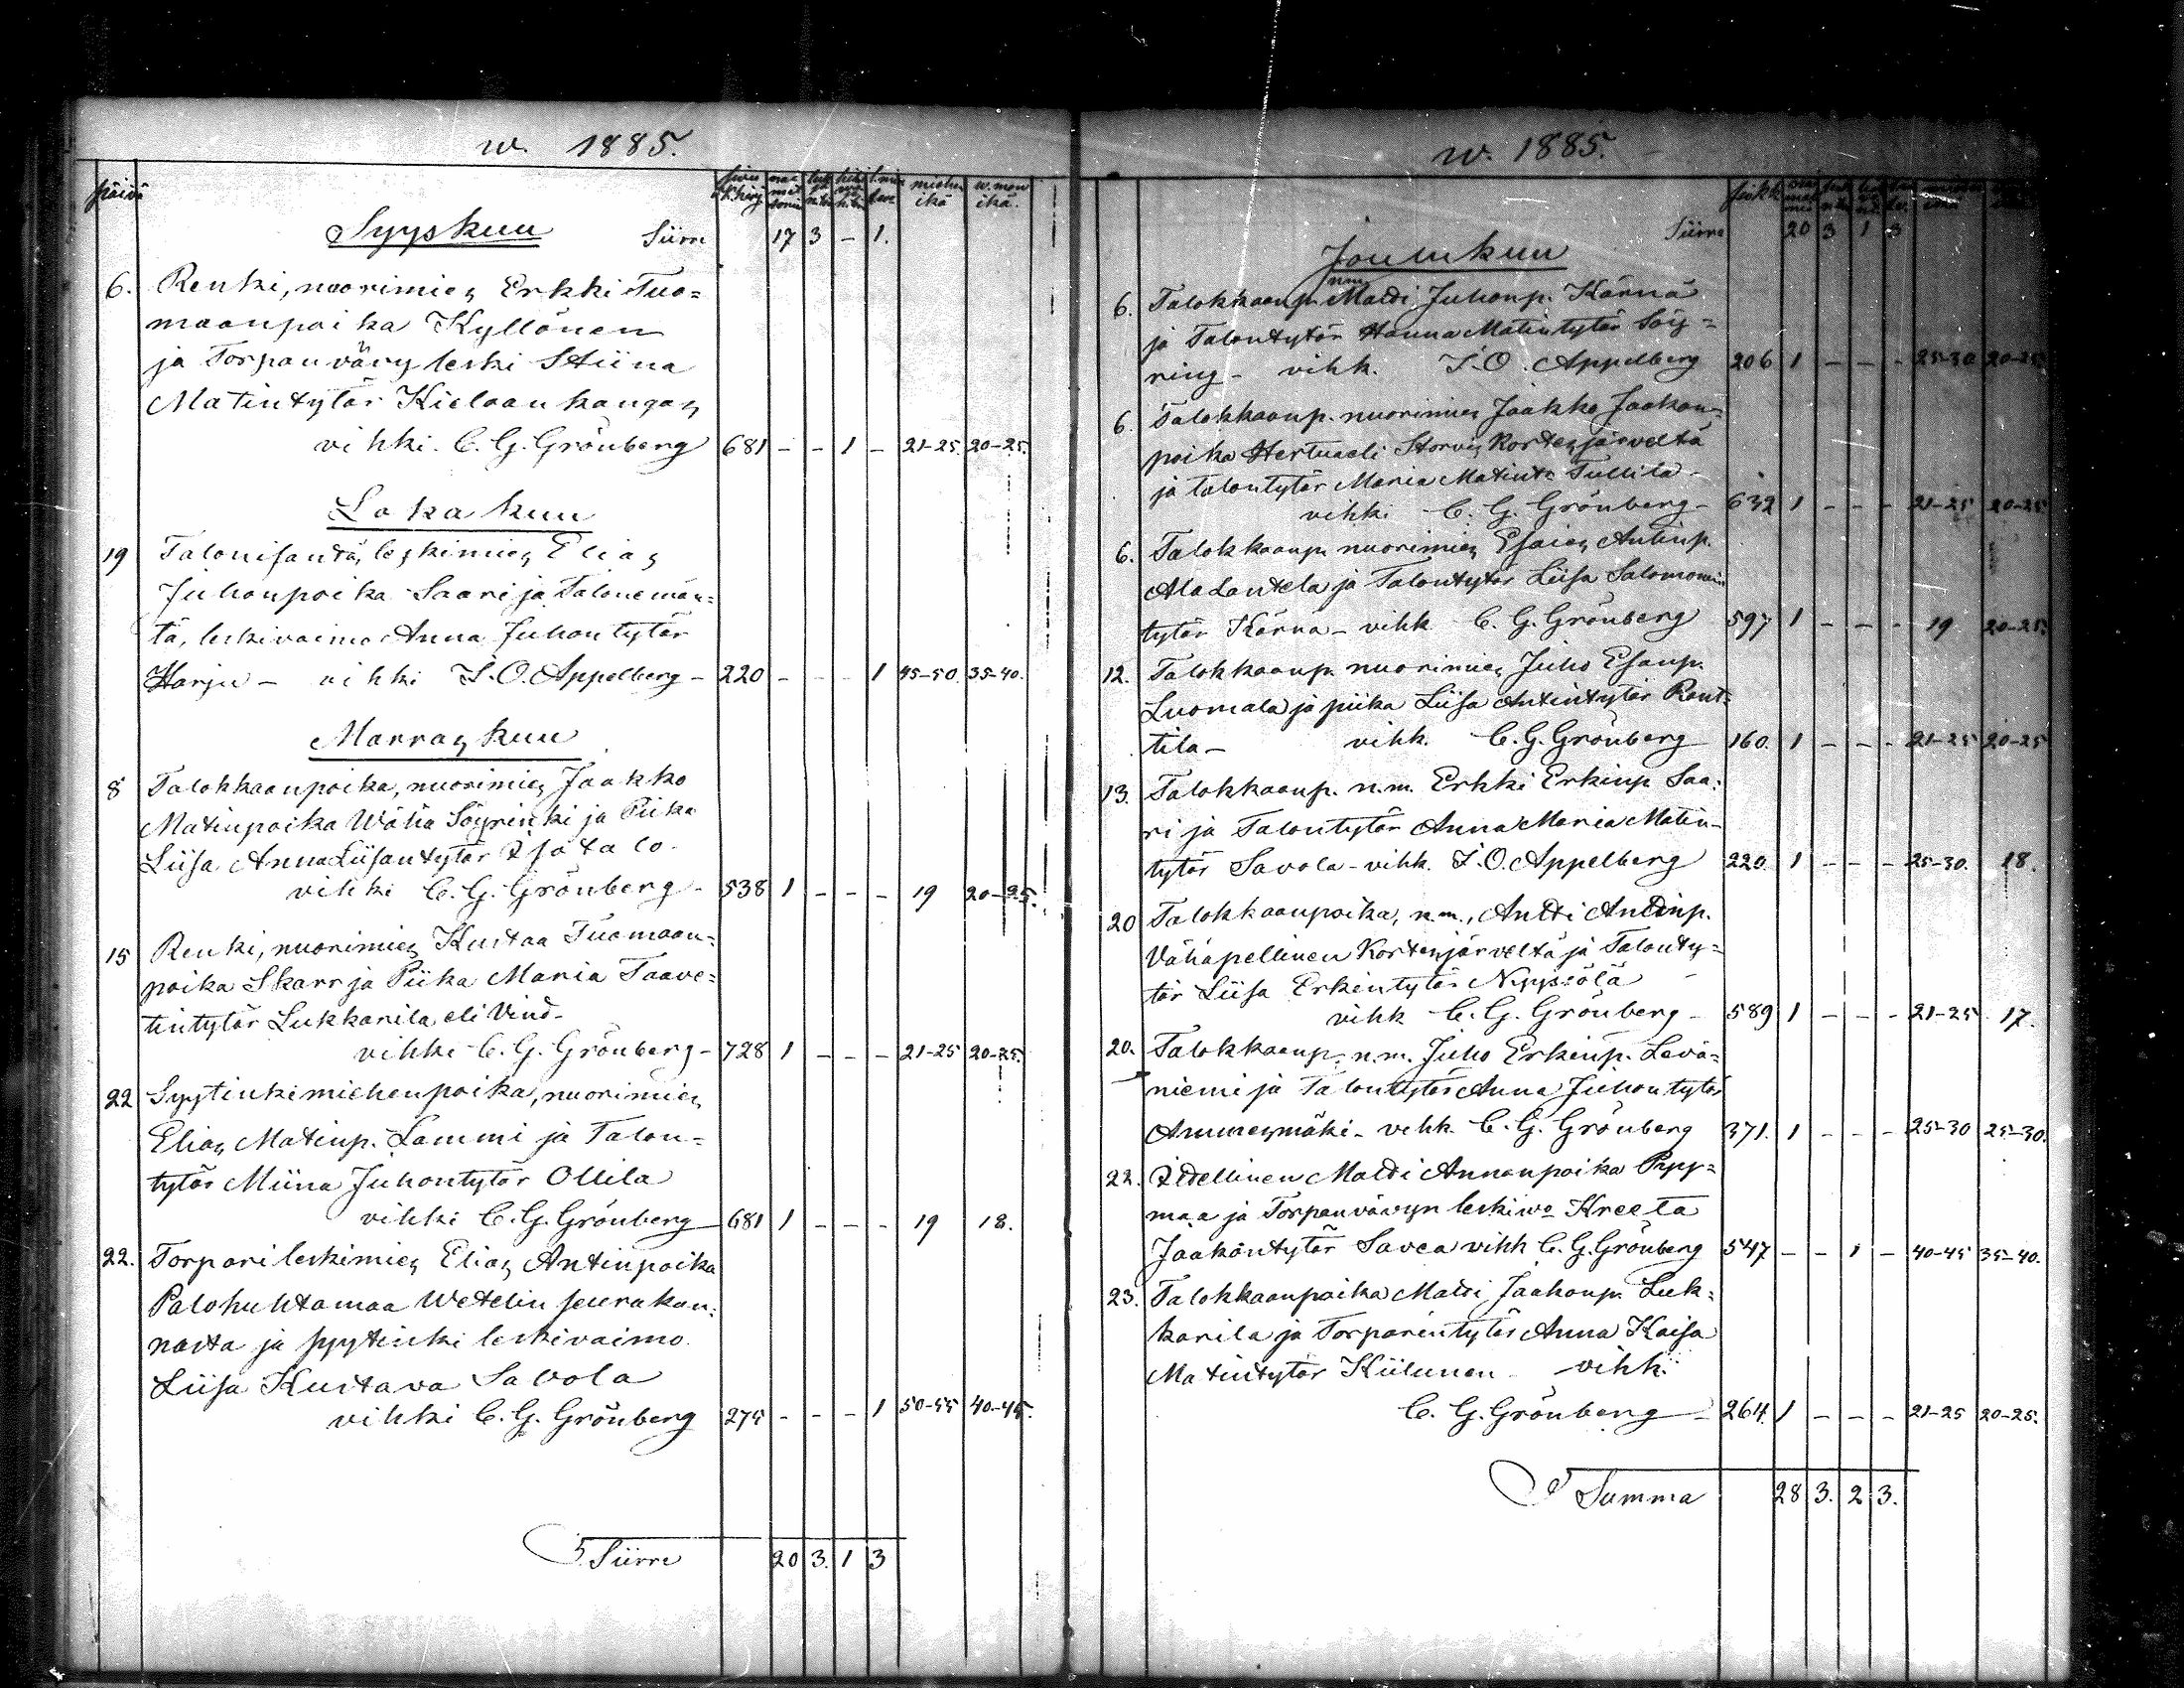 w. 1885.
päivä
miehen ikä
w.mon ikä.
Syyskuu Siirre 17 3 – 1.
6. Renki, nuorimies Erkki Tuo=
maanpoika Kyllönen
ja Torpanvävy leski Stiina
Matintytär Kielaankangas
vihki. C. G. Grönberg 681 – – 1 – 21-25. 20-25.
Lokakuu
19 Talonisäntä, leskimies Elias
Juhonpoika Saari ja Talonemän=
tä, leskivaimo Anna Juhontytär
Harju – vihki I. O. Appelberg – 220 – – – 1 45-50. 35-40.
Marraskuu
8 Talokkaanpoika, nuorimies Jaakko
Matinpoika Wähä Söyrinki ja Piika
Liisa AnnaLiisantytär Isotalo.
vihki C. G. Grönberg – 538 1 – – – 19 20-25.
15 Renki, nuorimies Kustaa Tuomaan=
poika Skarr ja Piika Maria Taave=
tintytär Lukkarila eli Vind –
vihki C. G. Grönberg – 728 1 – – – 21-25 20-25.
22 Syytinkimiehenpoika, nuorimies
Elias Matinp. Lammi ja Talon=
tytär Miina Juhontytär Ollila
vihki C. G. Grönberg 681 1 – – – 19 18.
22. Torpari leskimies Elias Antinpoika
Palohuhtamaa Wetelin seurakun=
nasta ja syytinki leskivaimo
Liisa Kustava Savola
vihki C. G. Grönberg 275 – – – 1 50-55 40-45.
Siirre 20 3. 1 3
w. 1885.
Siirre 20 3 1 3
Joulukuu
nm
6. Talokkaanp. Matti Juhonp. Kärnä
ja Talontytär Hanna Matintytär Söy=
ring – vihk. I. O. Appelberg 206 1 – – – 25-30 20-25
6. Talokkaanp. nuorimies Jaakko Jaakon=
poika Hertuaeli Storvis Kortesjärveltä
ja talontytär Maria Matint: Tullila –
vihki C. G. Grönberg – 632 1 – – – 21-25 20-25
6. Talokkaanp. nuorimies Esaias Antinp.
Ala Lantela ja Talontytär Liisa Salomonin
tytär Kärnä – vihk C. G. Grönberg 597 1 – – – 19 20-25.
12. Talokkaanp. nuorimies Juho Esanp.
Luomala ja piika Liisa Antintytär Rant=
tila – vihk. C. G. Grönberg 160. 1 – – – 21-25 20-25
13. Talokkaanp. n.m. Erkki Erkinp. Saa=
ri ja Talontytär Anna Maria Matin-
tytär Savola – vihk. I. O. Appelberg 220. 1 – – – 25-30. 18.
20 Talokkaanpoika, n.m., Antti Antinp.
Vähäpellinen Kortesjärveltä ja Talonty=
tär Liisa Erkintytär Nyssölä –
vihk C. G. Grönberg – 589 1 – – – 21-25 17.
20. Talokkaanp. n.m. Juho Erkinp. Levä=
niemi ja Talontytär Anna Juhontytär
Ammesmäki – vihk. C. G. Grönberg 371. 1 – – – 25-30 25-30.
22. Itellinen Matti Annanpoika Pyy=
maa ja Torpanvävyn leskiwo Kreeta
Jaakontytär Savea vihk C. G. Grönberg 547 – – 1 – 40-45 35-40.
23. Talokkaanpoika Matti Jaakonp. Luk=
karila ja Torparintytär Anna Kaisa
Matintytär Kiilunen vihk.
C. G. Grönberg – 264. 1 – – – 21-25 20-25.
Summa 28 3. 2 3.